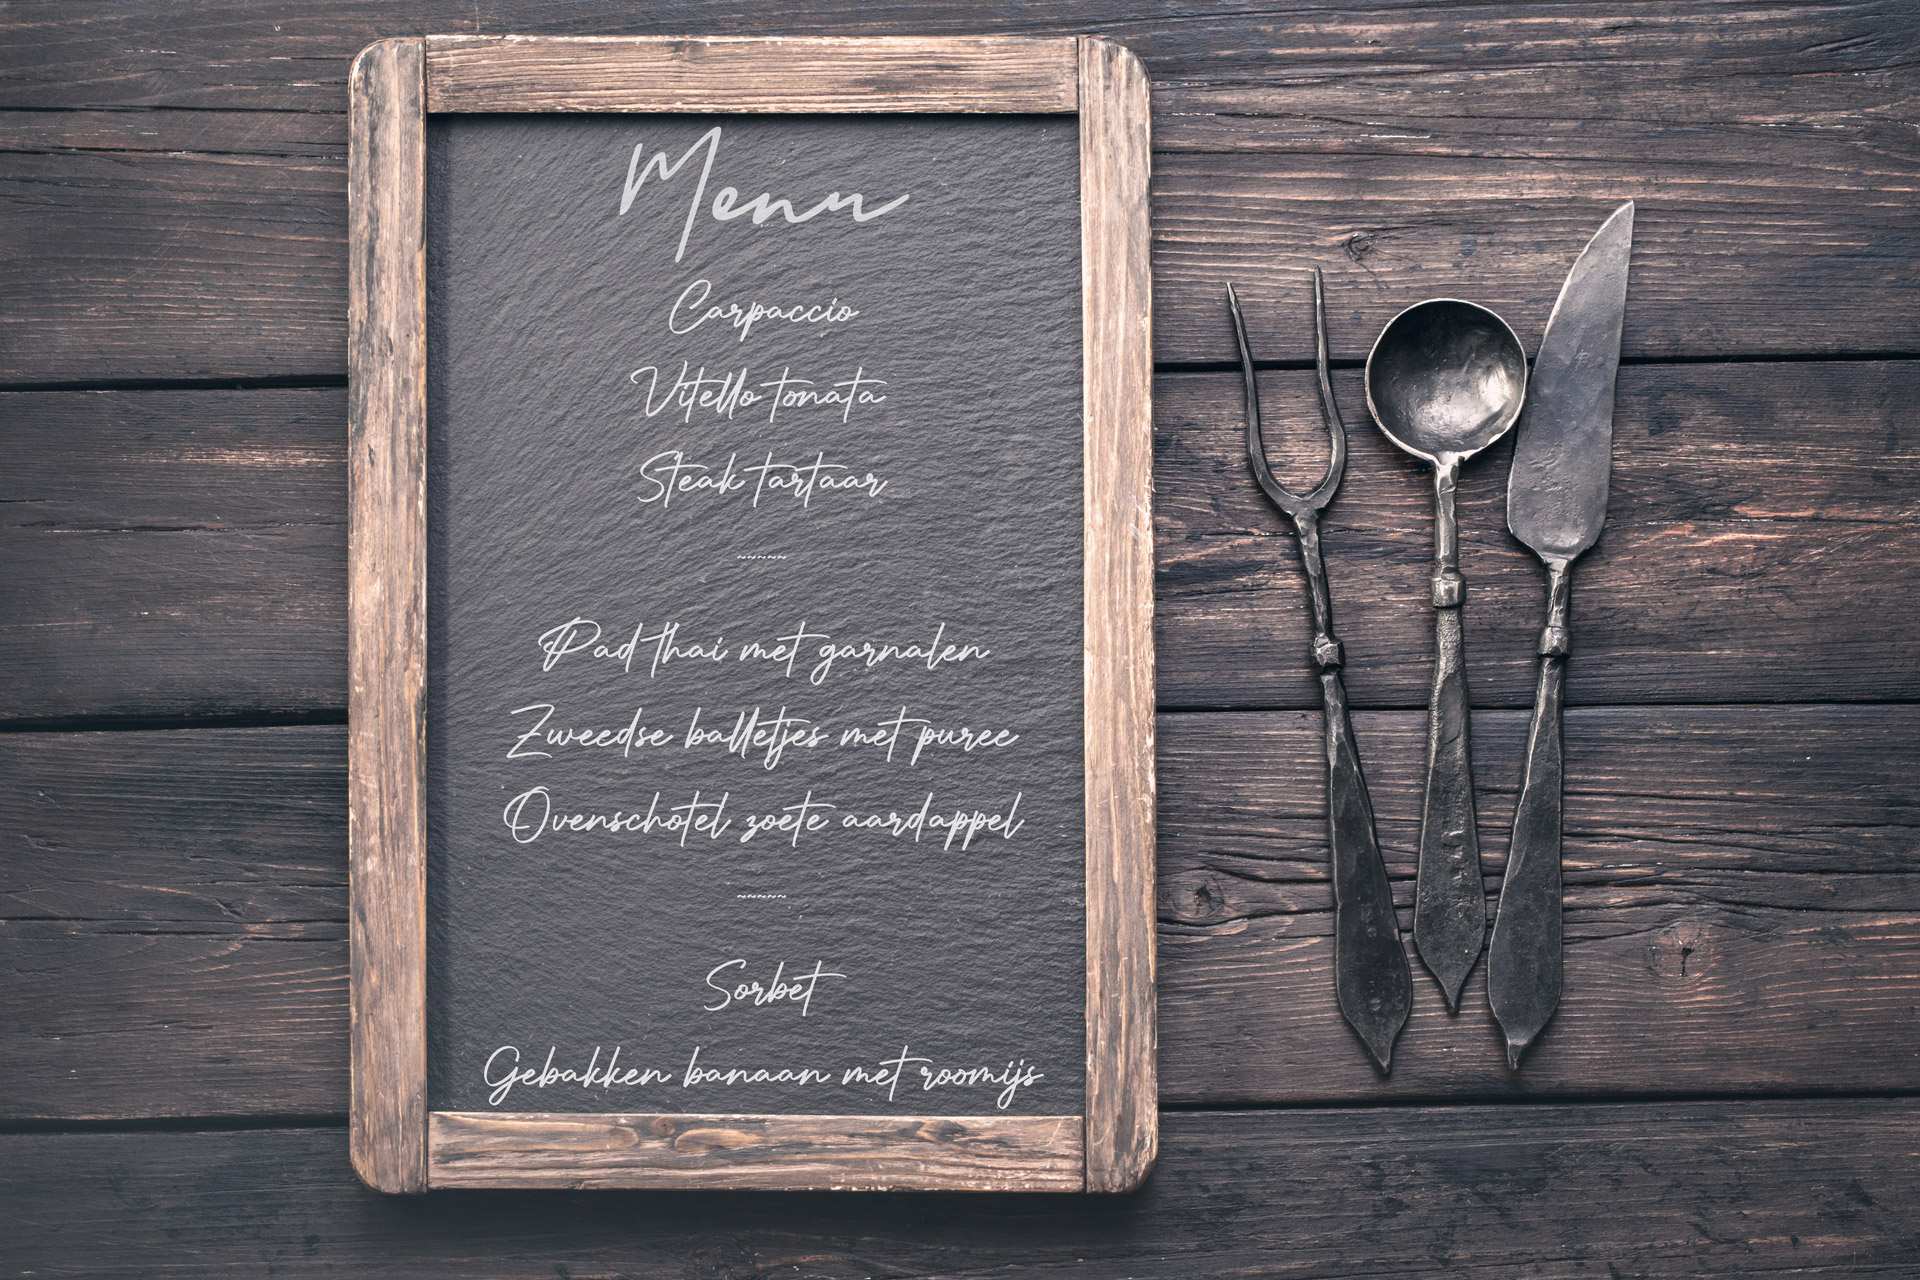 Menu
Carpaccio
Vitello tonata
Steak tartaar
~~~~~~
Pad thai met garnalen
Zweedse balletjes met puree
Ovenschotel zoete aardappel
~~~~~~
Sorbet
Gebakken banaan met roomijs